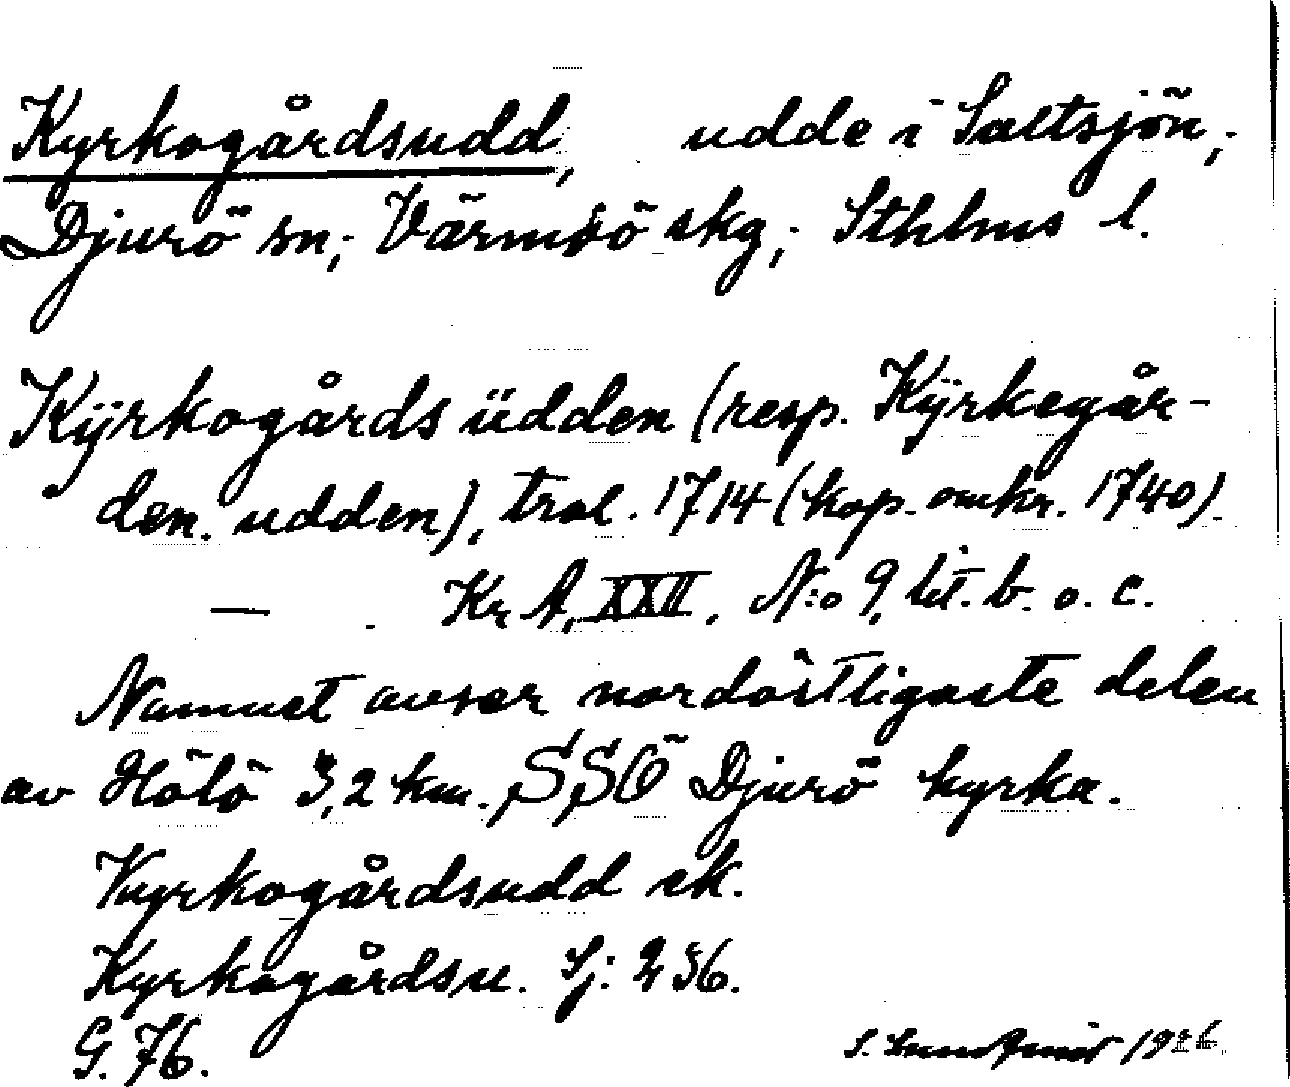 Kyrkogårdsudd, udde i Saltsjön,
Djurö sn; Värmdö skg; Sthlms l.
Kÿrkogårds üdden (resp. Kÿrkegår-
den. udden), trol. 1714 (kop. omkr. 1740).
— Kr A, XXII, N:o 9, lit. b. o. c.
Namnet avser nordöstligaste delen
av Hölö 3,2 km. SSÖ Djurö kyrka.
Kyrkogårdsudd ek.
Kyrkogårdsu. Sj: 236.
G. 76.
S. 1926